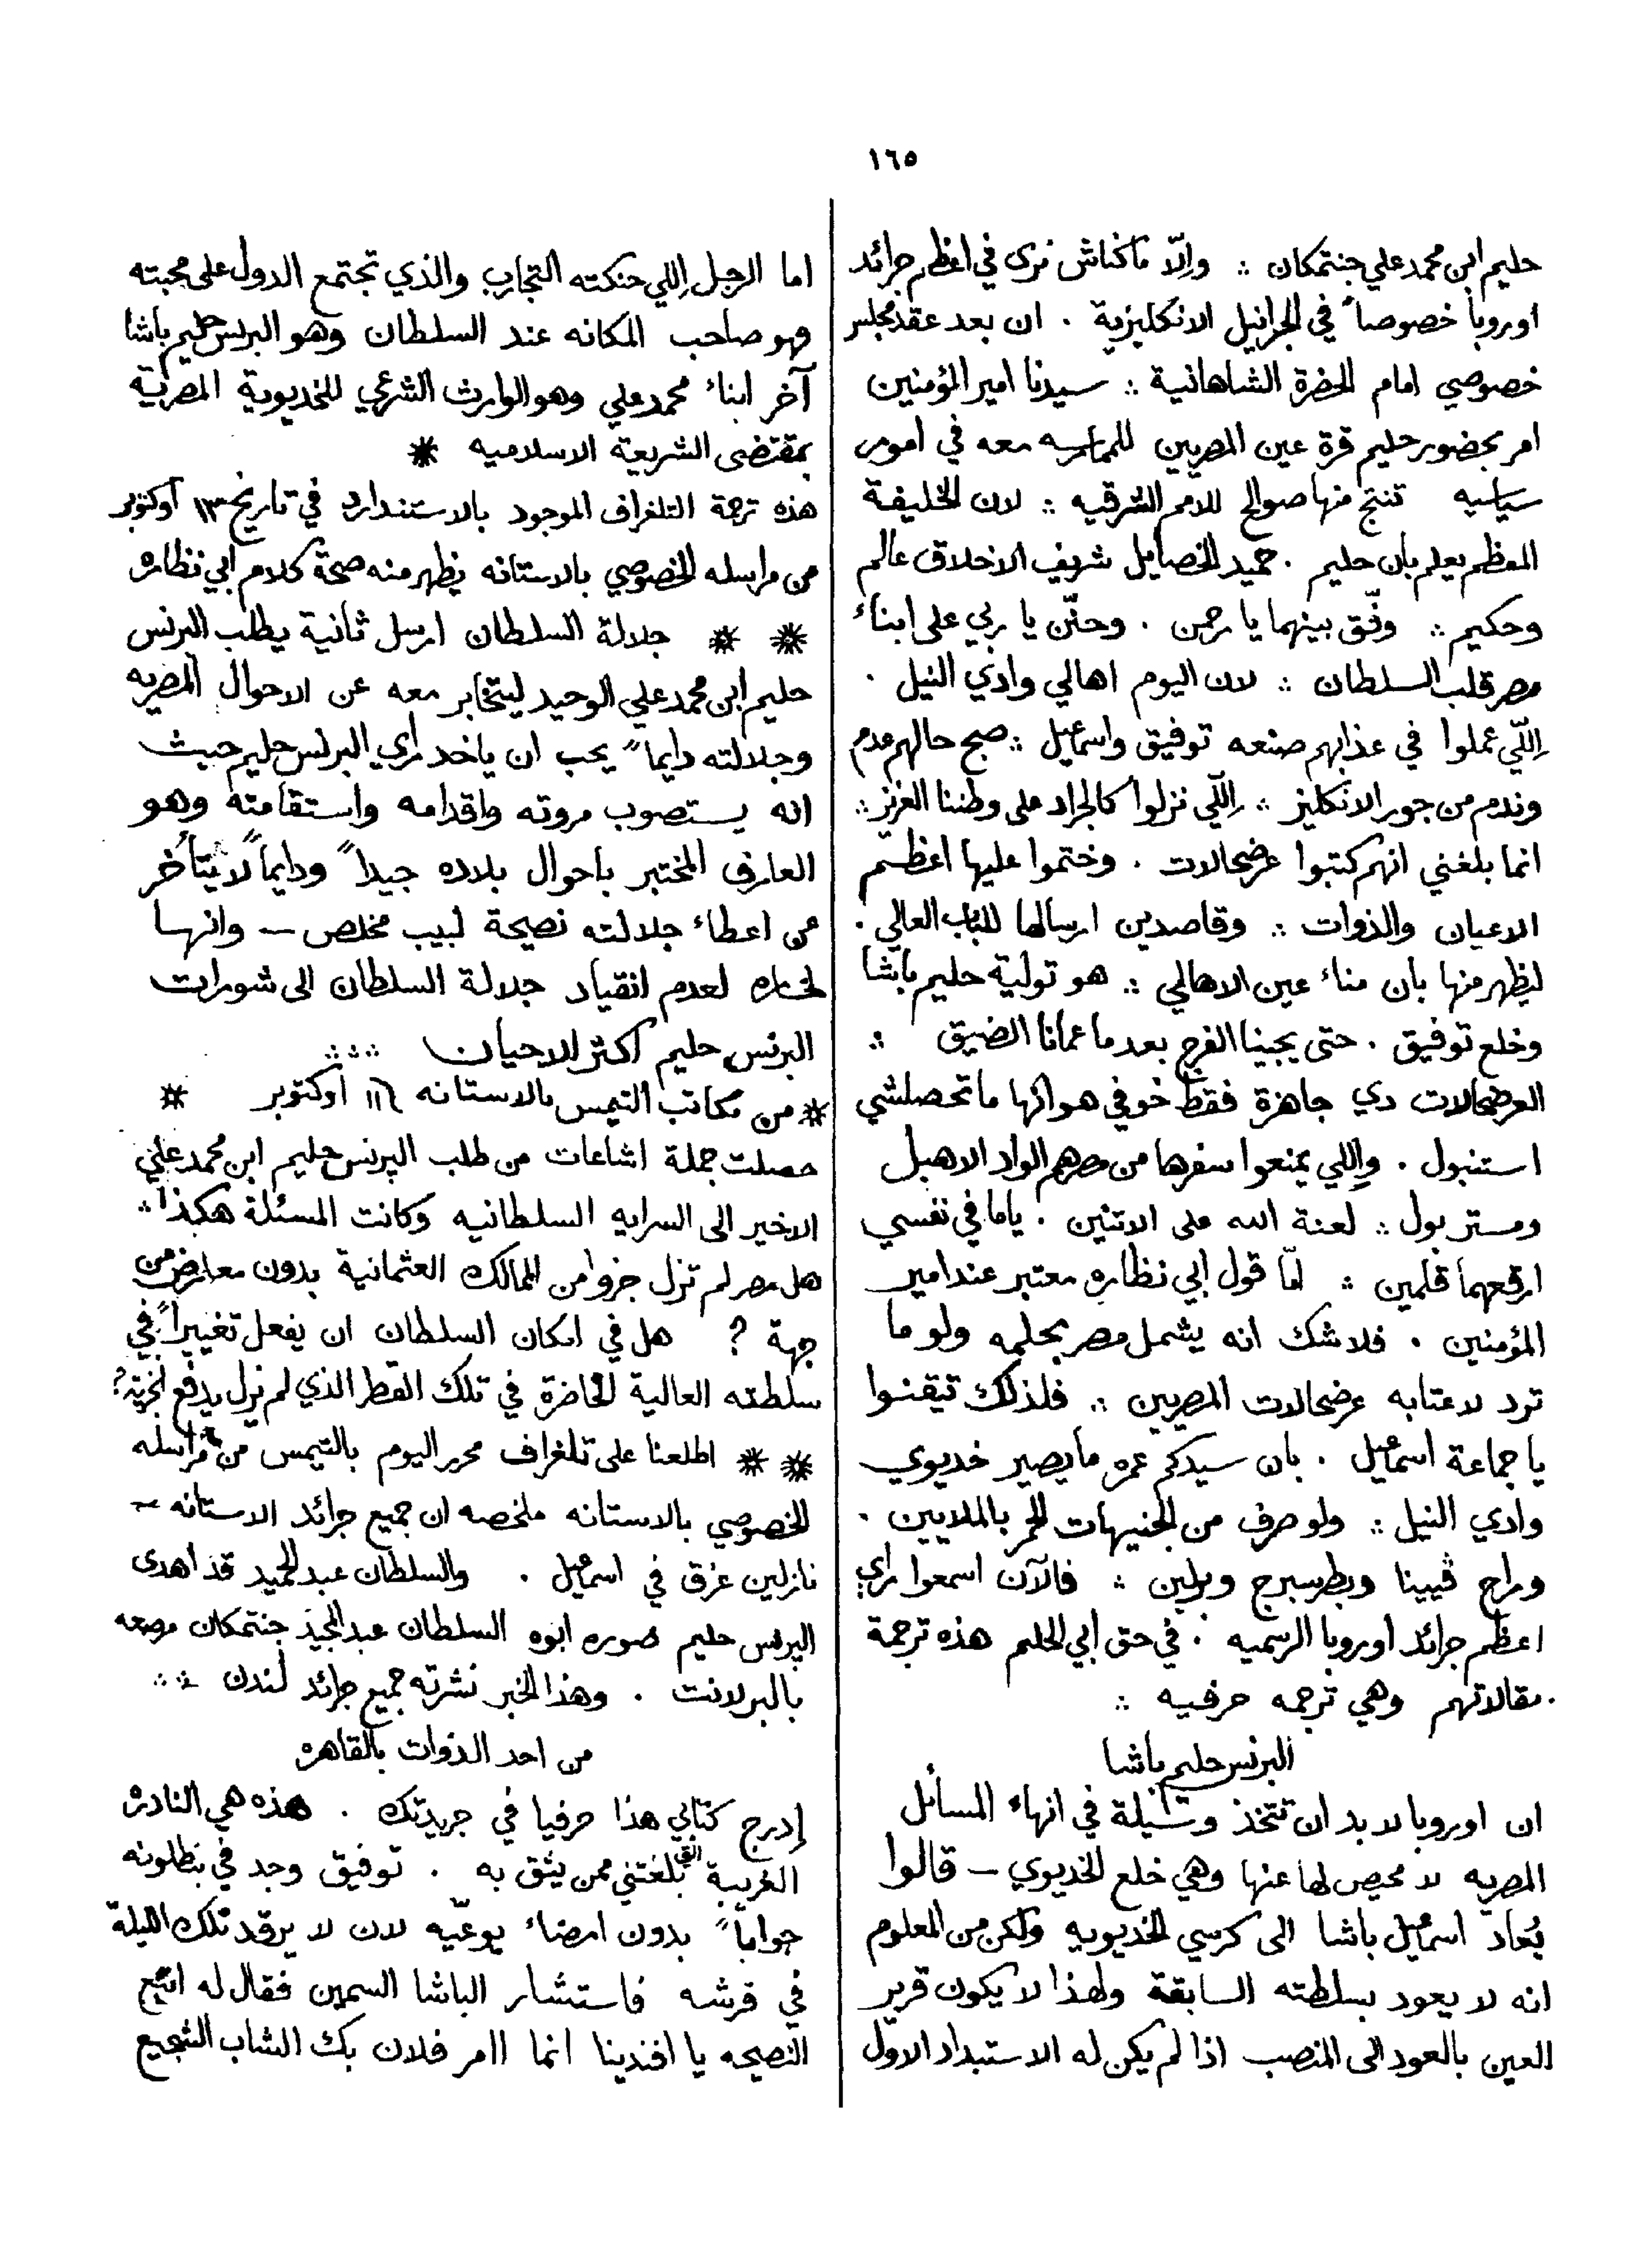 ١٦٥
حليم ابن محمد علي جنتمكان ∴ وإلّا ماكناش نرى في اعظم جرائد
اوروبا خصوصاً في الجرانيل الانكليزية . ان بعد عقد مجلس
خصوصي امام الحضرة الشاهانية ∴ سيدنا امير المؤمنين
امر بحضور حليم قرة عين المصريين للمامره معه في امور
سياسيه تنتج منها صوالح للامم الشرقيه ∴ لان الخليفة
المعظم يعلم بان حليم . حميد الخصايل شريف الاخلاق عالم
وحكيم ∴ وفّق بينهما يا رحمن . وحنّن يا ربي على ابناء
مصر قلب السلطان ∴ لان اليوم اهالي وادي النيل .
إللّي عملوا في عذابهم صنعه توفيق واسمعيل ∴ صبح حالهم عدم
وندم من جور الانكليز ∴ إللّي نزلوا كالجراد على وطننا العزيز ∴
انما بلغني انهم كتبوا عرضحالات . وختموا عليها اعظم
الاعيان والذوات ∴ وقاصدين ارسالها للباب العالي .
ليظهر منها بان مناء عين الاهالي ∴ هو تولية حليم باشا
وخلع توفيق . حتى يجينا الفرج بعد ما عمانا الضيق ∴
العرضحالات دي جاهزة فقط خوفي هوانها ما تحصلشي
استنبول . وإللي يمنعوا سفرها من مصر هم الواد الاهبل
ومستر بول ∴ لعنة الله على الاتنين . ياما في نفسي
ارقعهما قلمين ∴ امّا قول ابي نظاره معتبر عند امير
المؤمنين . فلا شك انه يشمل مصر بحلمه ولو ما
ترد لاعتابه عرضحالات المصريين ∴ فلذلك تيقنوا
يا جماعة اسمعيل . بان سيدكم عمره ما يصير خديوي
وادي النيل ∴ ولو صرف من الجنيهات الحمر بالملايين .
وراح ڤيينا وبطرسبرج وبرلين ∴ فالآن اسمعوا راي
اعظم جرائد اوروبا الرسميه . في حق ابي الحلم هذه ترجمة
مقالاتهم وهي ترجمه حرفيه ∴
البرنس حليم باشا
ان اوروبا لا بد ان تتخذ وسيلة في انهاء المسائل
المصريه لا محيص لها عنها وهي خلع الخديوي – قالوا
يُعاد اسمعيل باشا الى كرسي الخديويه ولكن من المعلوم
انه لا يعود بسلطته السابقة ولهذا لا يكون قرير
العين بالعود الى المنصب اذا لم يكن له الاستبداد الاول
اما الرجل إللي حنكته التجارب والذي تجتمع الدول على محبته
فهو صاحب المكانه عند السلطان وهو البرنس حليم باشا
آخر ابناء محمد علي وهو الوارث الشرعي للخديوية المصرية
بمقتضى الشريعة الاسلاميه *
هذه ترجمة التلغراف الموجود بالاستندارد في تاريخ ١٣ اوكتوبر
من مراسله الخصوصي بالاستانه يظهر منه صحة كلام ابي نظاره
* * جلالة السلطان ارسل ثانية يطلب البرنس
حليم ابن محمد علي الوحيد ليتخابر معه عن الاحوال المصريه
وجلالته دايماً يحب ان ياخد راي البرنس حليم حيث
انه يستصوب مروته واقدامه واستقامته وهو
العارف المختبر باحوال بلاده جيداً ودايماً لا يتأخر
عن اعطاء جلالته نصيحة لبيب مخلص – وانها
لخساره لعدم انقياد جلالة السلطان الى شورات
البرنس حليم اكثر الاحيان ∴ ∴
* من مكاتب التيمس بالاستانه ١٦ اوكتوبر *
حصلت جملة اشاعات من طلب البرنس حليم ابن محمد علي
الاخير الى السرايه السلطانيه وكانت المسئلة هكذا ∴
هل مصر لم تزل جزوا من الممالك العثمانية بدون معارض من
جهة ؟ هل في امكان السلطان ان يفعل تغييراً في
سلطته العالية الحاضرة في تلك القطر الذي لم يزل يدفع الجزية ؟
* * اطلعنا على تلغراف محرر اليوم بالتيمس من مراسله
الخصوصي بالاستانه ملخصه ان جميع جرائد الاستانه –
نازلين عزق في اسمعيل . والسلطان عبد الحميد قد اهدى
البرنس حليم صوره ابوه السلطان عبد المجيد جنتمكان مرصعه
بالبرلانت . وهذا الخبر نشرته جميع جرائد لندن ∴
من احد الذوات بالقاهره
إدرج كتابي هذا حرفيا في جريدتك . هذه هي النادره
الغريبة التي بلغتني ممن يثق به . توفيق وجد في بنطلونه
جواباً بدون امضاء يوعّيه لان لا يرقد تلك الليلة
في فرشه فاستشار الباشا السمين فقال له اتبع
النصيحه يا افندينا انما اامر فلان بك الشاب الشجيع